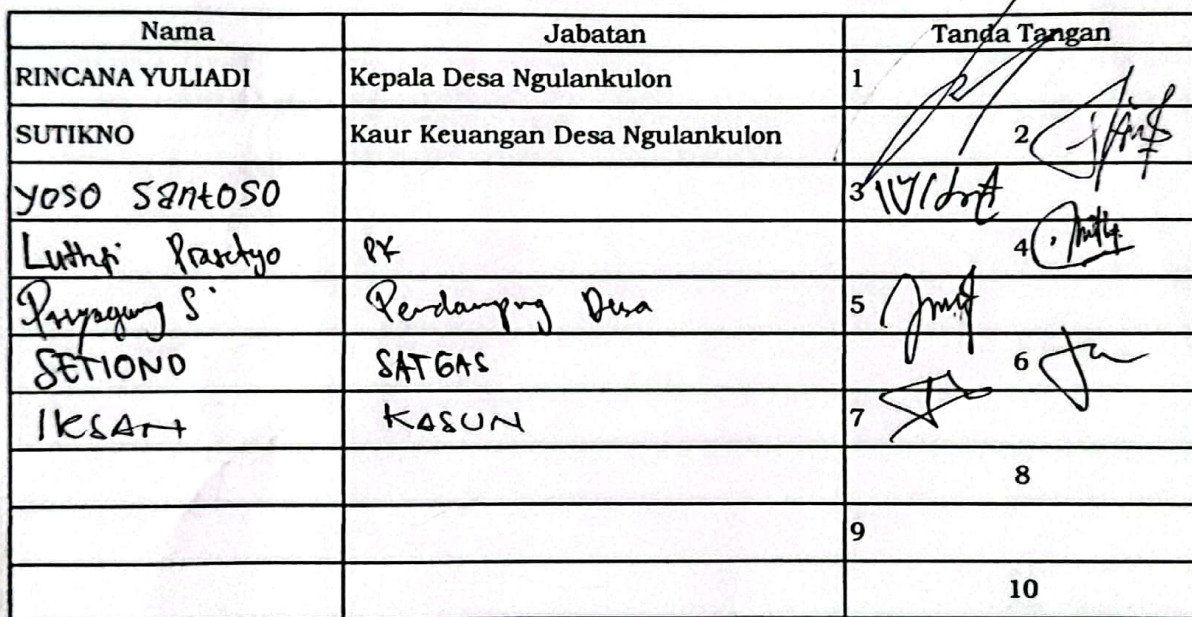 Nama Jabatan Tanda Tangan
RINCANA YULIADI Kepala Desa Ngulankulon 1
SUTIKNO Kaur Keuangan Desa Ngulankulon 2
Yoso Santoso 3
Luthfi Prasetyo PK 4
Priyagung S Pendamping Desa 5
SETIONO SATGAS 6
IKSAN KASUN 7
8
9
10